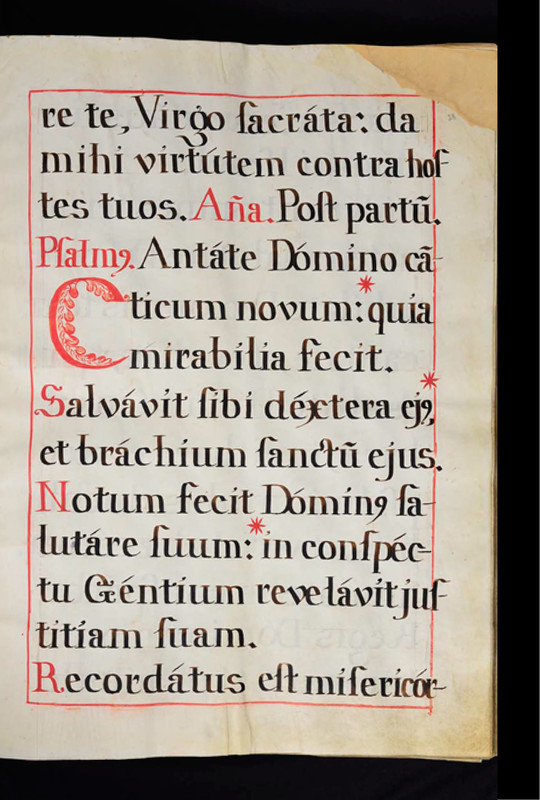 re te, Virgo sacráta: da
mihi virtútem contra hoſ-
tes tuos. Aña. Poſt partũ.
Pſalmꝰ. Antáte Dómino cã-
C ticum novum: * quia
mirabília fecit.
Salvávit ſibi déxtera ejꝰ, *
et bráchium ſanctũ ejus.
Notum fecit Dóminꝰ ſa-
lutáre ſuum: * in conſpéc-
tu Géntium revelávit juſ-
titíam ſuam.
Recordátus eſt miſericór-